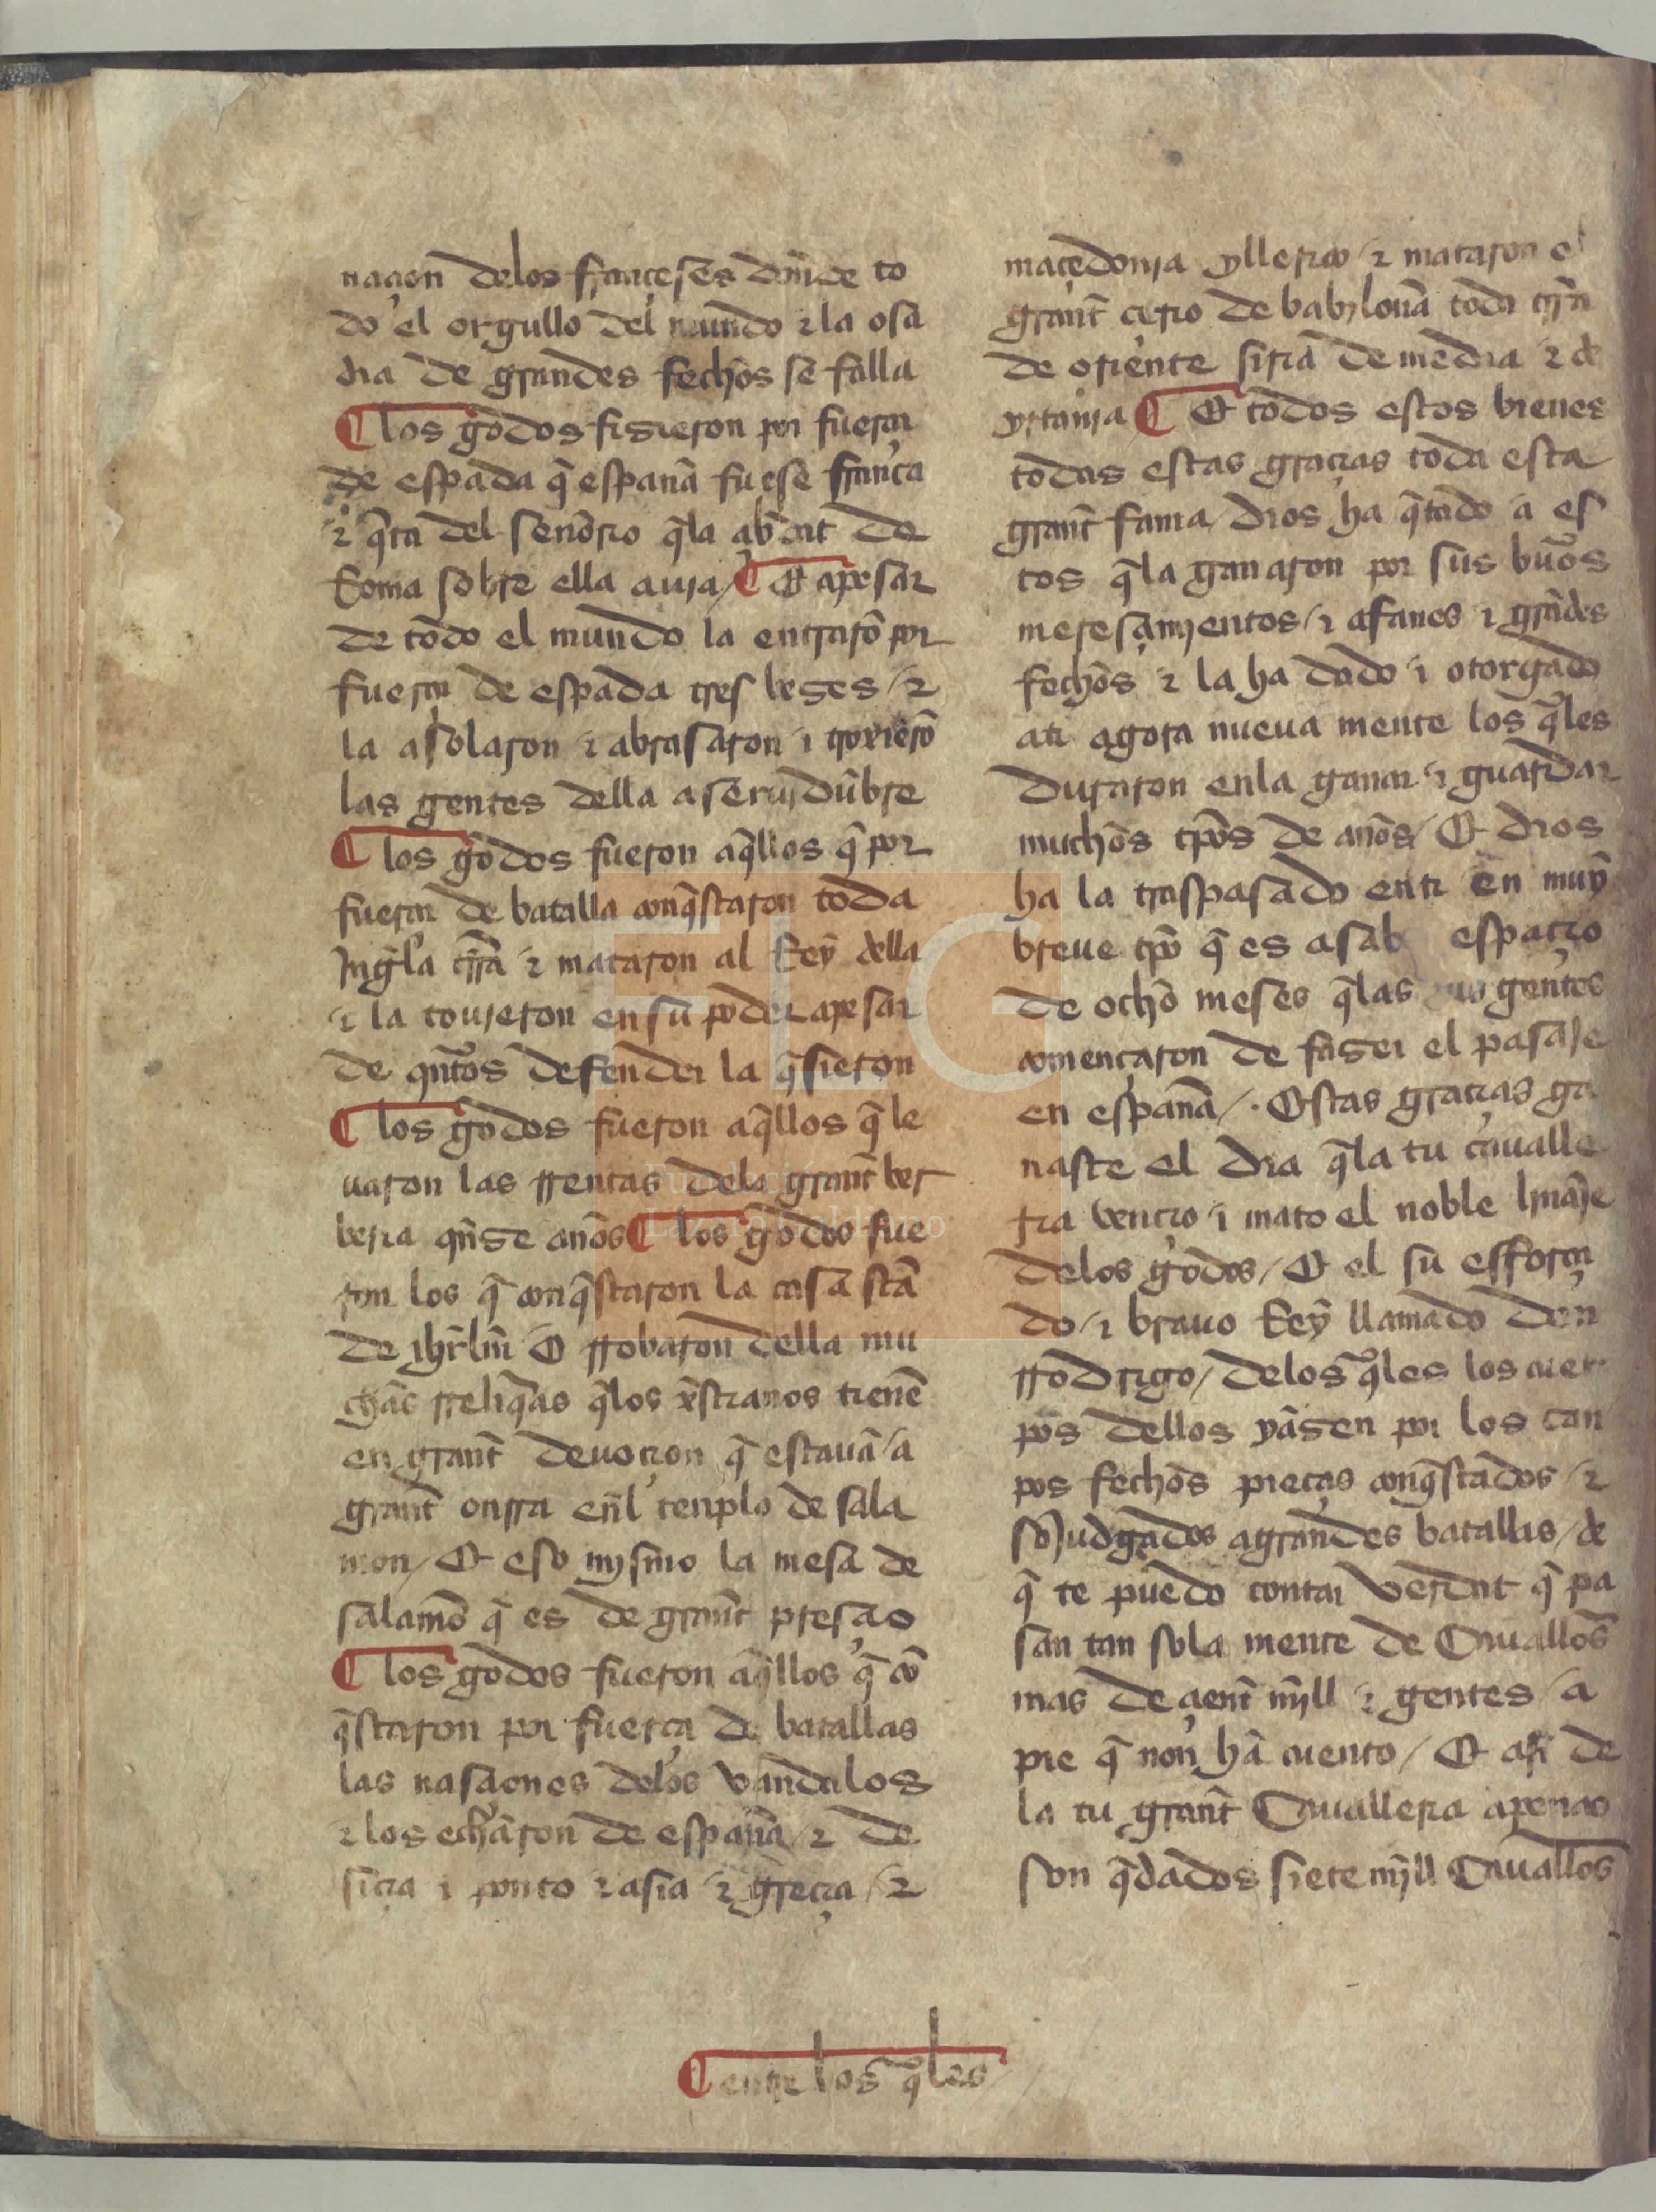 naçion delos françeses dõnde to
do el orgullo del mundo ⁊ la osa
dia de grandes fechos se falla
¶ los godos fisieron por fuerça
de espada q̃ españa fuese franca
⁊ q̃ta del señorio q̃la abdat de
Roma sobre ella auja / ¶ Et apesar
de todo el mundo la entrarõ por
fuerça de espada tres veses / ⁊
la asolaron ⁊ abrasaron ⁊ troxierõ
las gentes della a serujdũbre
¶ los godos fueron aq̃llos q̃ por
fuerça de batalla conq̃staron toda
Jngla trra ⁊ mataron al Rey della
⁊ la toujeron en su poder apesar
de qntos defender la q̃sieron
¶ los godos fueron aq̃llos q̃ le
uaron las rrentas dela grant ber
beria qnse años ¶ los godos fue
ron los q̃ conq̃staron la casa stã
de jhrlm̃ E rrobaron della mu
chas rreliq̃as q̃los xp̃stianos tienẽ
en grant deuoçion q̃ estauã / a
grant onrra enl tenplo de sala
mon / Et eso mjsmo la mesa de
salamõ q̃ es de grant presçio
¶ los godos fueron aq̃llos q̃ cõ
q̃staron por fuerça de batallas
las nasçiones delos vandalos
⁊ los echaron de españa / ⁊ de
siria ⁊ ponto ⁊ asia ⁊ greçia / ⁊
maçedonja yllerico / ⁊ mataron el
grant cerio de babylonã toda trra
de oriente siria de media ⁊ de
yrtanja ¶ Et todos estos bienes
todas estas graçias toda esta
grant fama / dios ha q̃tado a es
tos q̃la ganaron por sus buẽos
meresçamjentos / ⁊ afanes ⁊ grãdes
fechos ⁊ la ha dado ⁊ otorgado
ati agora nueua mente los q̃les
duraron enla ganar ⁊ guardar
muchos tpõs de años / Et dios
ha la traspasado enti en muy
breue tpõ q̃ es asab espaçio
de ocho meses q̃las gentes
comença̧ron de faser el pasaje
en españa / . Estas graçias ga
naste el dia q̃la tu cauallе
ria vençio ⁊ mato el noble linaje
delos godos / Et el su esforça
do / ⁊ brauo Rey llamado don
rrodrigo / delos q̃les los cuer
pos dellos yasen por los can
pos fechos pieças conq̃stados / ⁊
sojudgados a grandes batallas / de
q̃ te puedo contar verdat q̃ pa
san tan sola mente de Cauallos
mas de çient mjll ⁊ gentes / a
pie q̃ non hã cuento / Et asi de
la tu grant Caualleria apenas
son q̃dados siete mjll Cauallos
¶ entre los q̃les